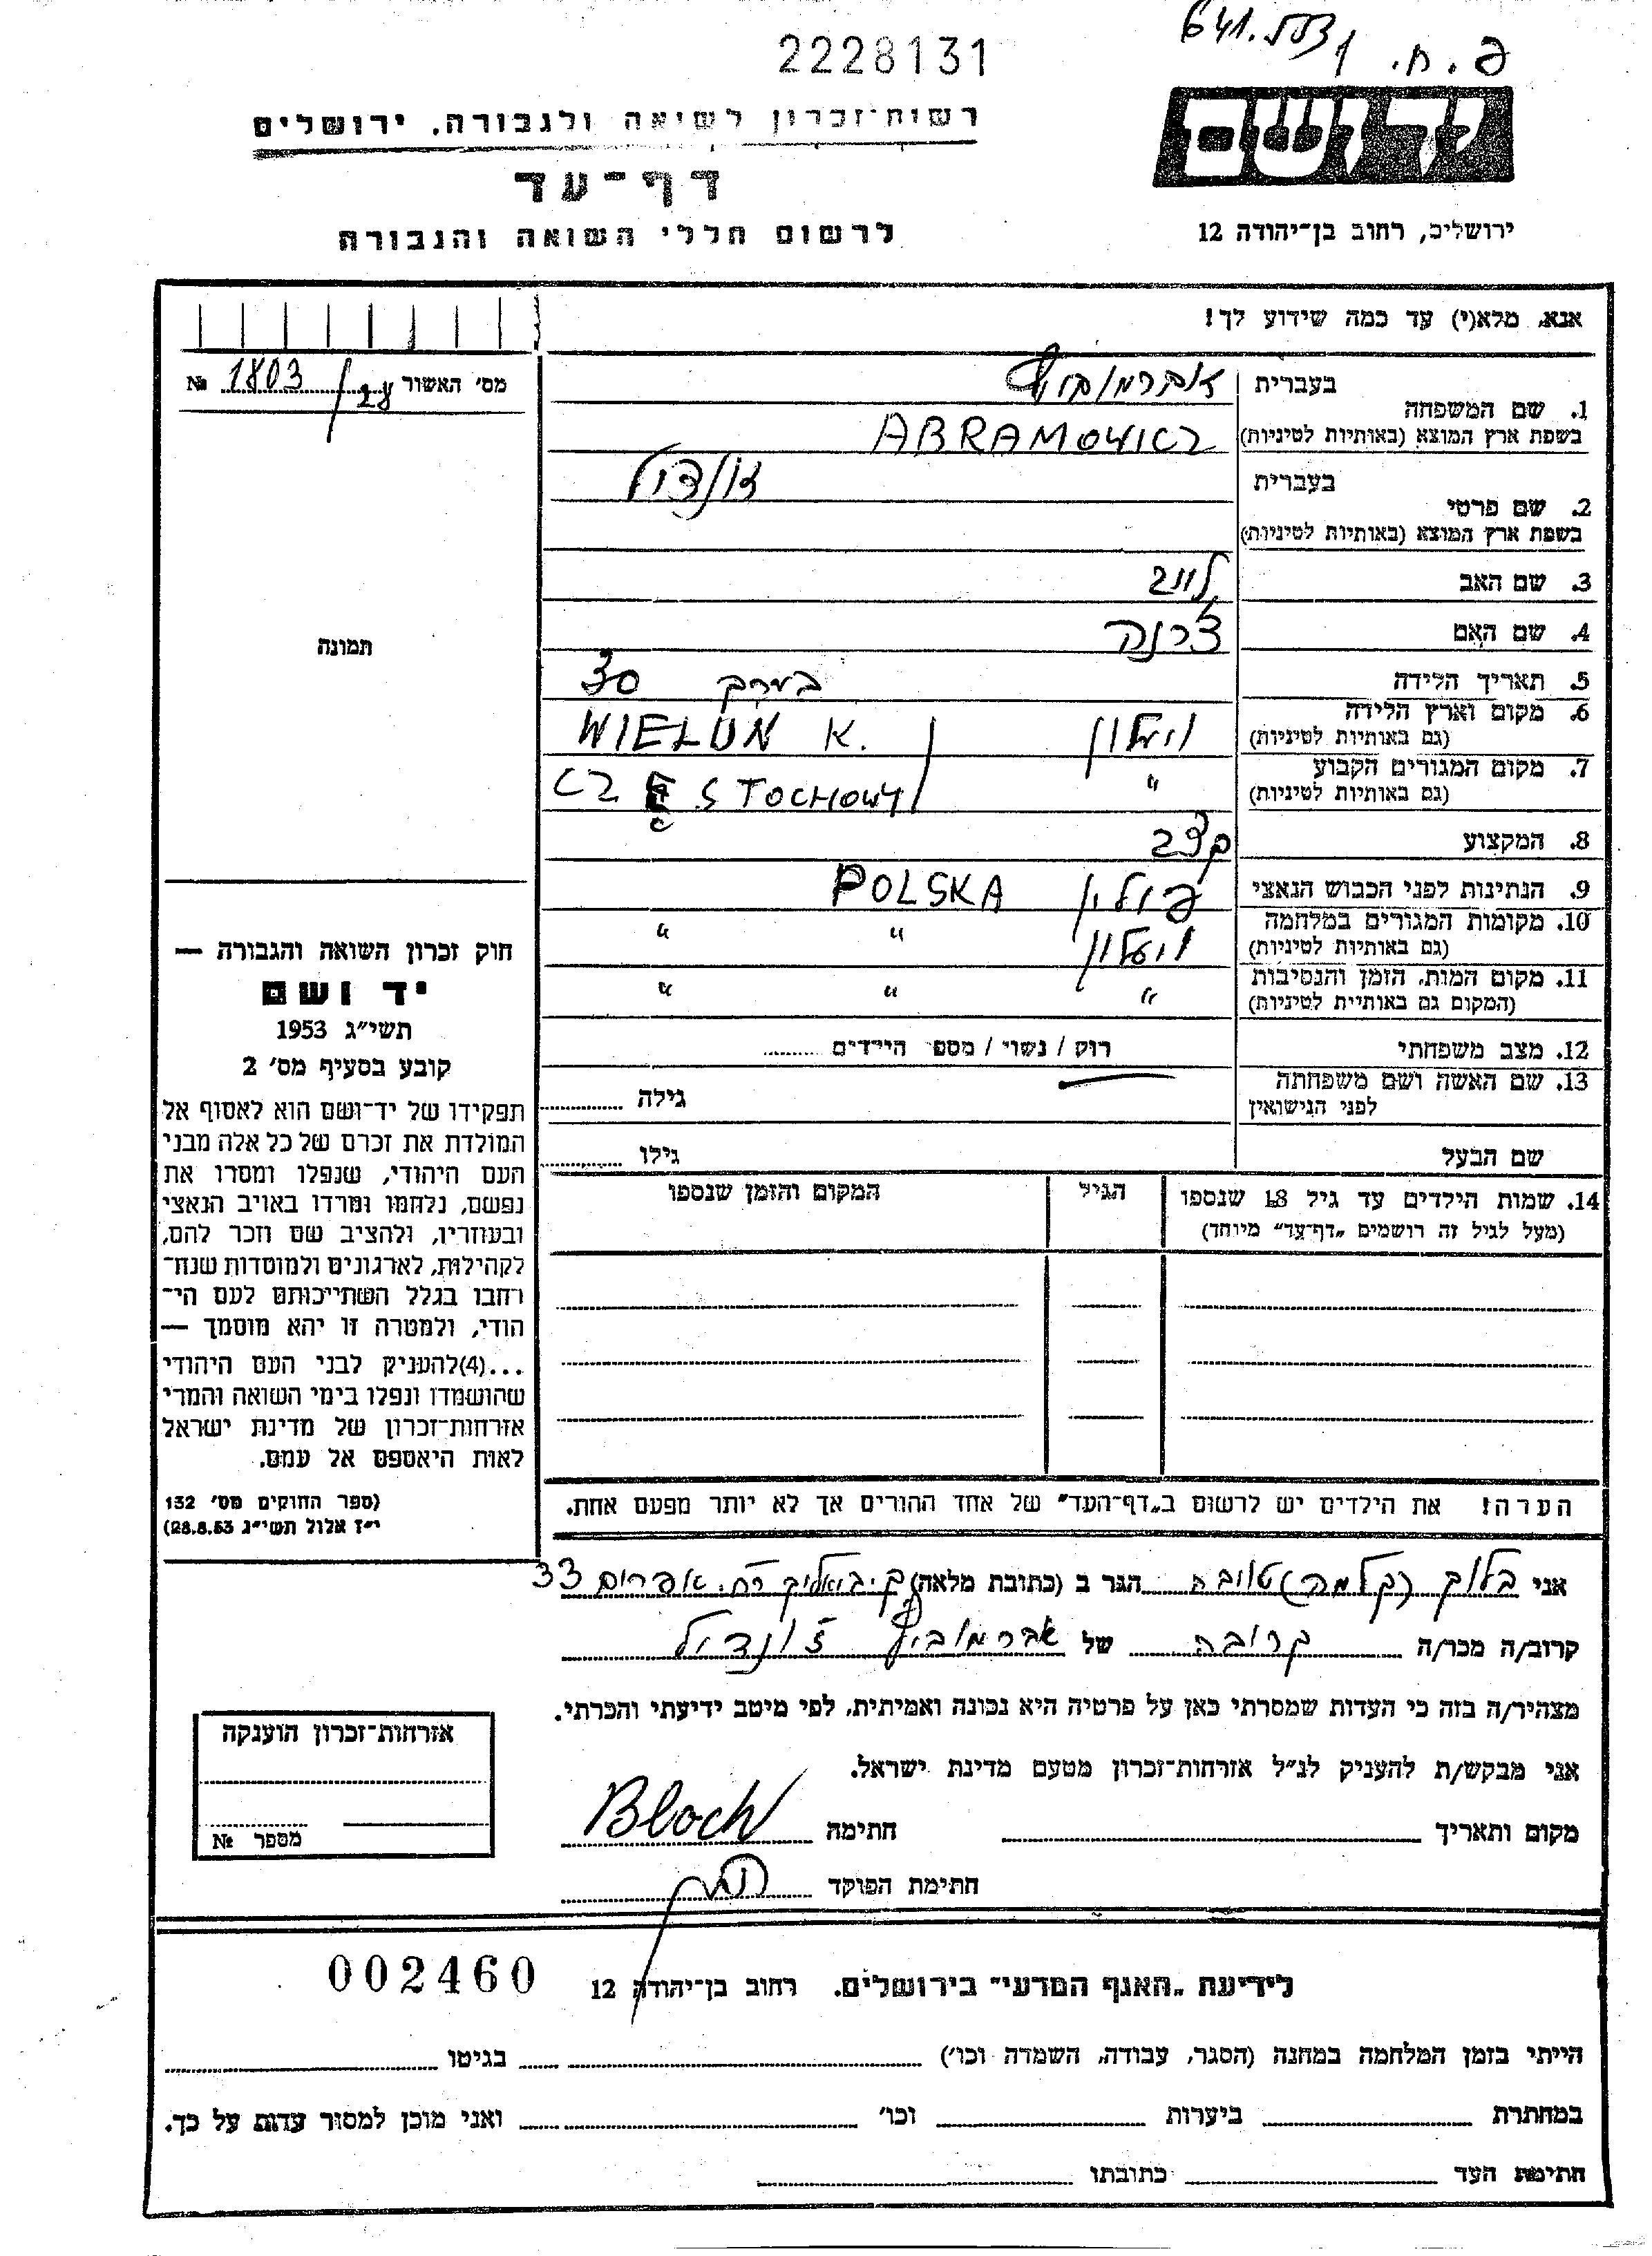 2228131
רשות־זכרון לשואה ולגבורה. ירושלים
דף־עד
לרשום חללי השואה והגבורה
פ.ח.
ידושם
ירושלים, רחוב בן־יהודה 12
אנא, מלא(י) עד כמה שידוע לך!
מס׳ האשור 1803/28 №
תמונה
1. שם המשפחה
בעברית אברמוביץ
בשפת ארץ המוצא (באותיות לטיניות) ABRAMOWICZ
2. שם פרטי
בעברית זונדיל
בשפת ארץ המוצא (באותיות לטיניות)
3. שם האב לייב
4. שם האם
5. תאריך הלידה בערך 30
6. מקום וארץ הלידה
(גם באותיות לטיניות) ויעלון WIELUN K.
7. מקום המגורים הקבוע
(גם באותיות לטיניות) " CZĘSTOCHOWY
8. המקצוע קצב
9. הנתינות לפני הכבוש הנאצי פולין POLSKA
10. מקומות המגורים במלחמה
(גם באותיות לטיניות) ויעלון " "
11. מקום המות, הזמן והנסיבות
(המקום גם באותיות לטיניות) " " "
12. מצב משפחתי רוק / נשוי / מספר הילדים
13. שם האשה ושם משפחתה
לפני הנישואין גילה
שם הבעל גילו
14. שמות הילדים עד גיל 18 שנספו
(מעל לגיל זה רושמים „דף־עד״ מיוחד)
הגיל
המקום והזמן שנספו
חוק זכרון השואה והגבורה —
יד ושם
תשי״ג 1953
קובע בסעיף מס׳ 2
תפקידו של יד־ושם הוא לאסוף אל
המולדת את זכרם של כל אלה מבני
העם היהודי, שנפלו ומסרו את
נפשם, נלחמו ומרדו באויב הנאצי
ובעוזריו, ולהציב שם וזכר להם,
לקהילות, לארגונים ולמוסדות שנח־
רחבו בגלל השתייכותם לעם הי־
הודי, ולמטרה זו יהא מוסמך —
...(4)להעניק לבני העם היהודי
שהושמדו ונפלו בימי השואה והמרי
אזרחות־זכרון של מדינת ישראל
לאות היאספם אל עמם.
(ספר החוקים מס׳ 132
י״ז אלול תשי״ג 28.8.53)
הערה! את הילדים יש לרשום ב„דף־העד״ של אחד ההורים אך לא יותר מפעם אחת.
אני בלוך (קלמה) טובה הגר ב (כתובת מלאה) ק. ביאליק רח. אפרים 33
קרוב/ה מכר/ה קרובה של אברמוביץ זונדיל
מצהיר/ה בזה כי העדות שמסרתי כאן על פרטיה היא נכונה ואמיתית, לפי מיטב ידיעתי והכרתי.
אני מבקש/ת להעניק לנ״ל אזרחות־זכרון מטעם מדינת ישראל.
מקום ותאריך חתימה Bloch
חתימת הפוקד
אזרחות־זכרון הוענקה
מספר №
לידיעת „האגף המדעי״ בירושלים. רחוב בן־יהודה 12 002460
הייתי בזמן המלחמה במחנה (הסגר, עבודה, השמדה וכו׳) בגיטו
במחתרת ביערות וכו׳ ואני מוכן למסור עדות על כך.
חתימת העד כתובתו